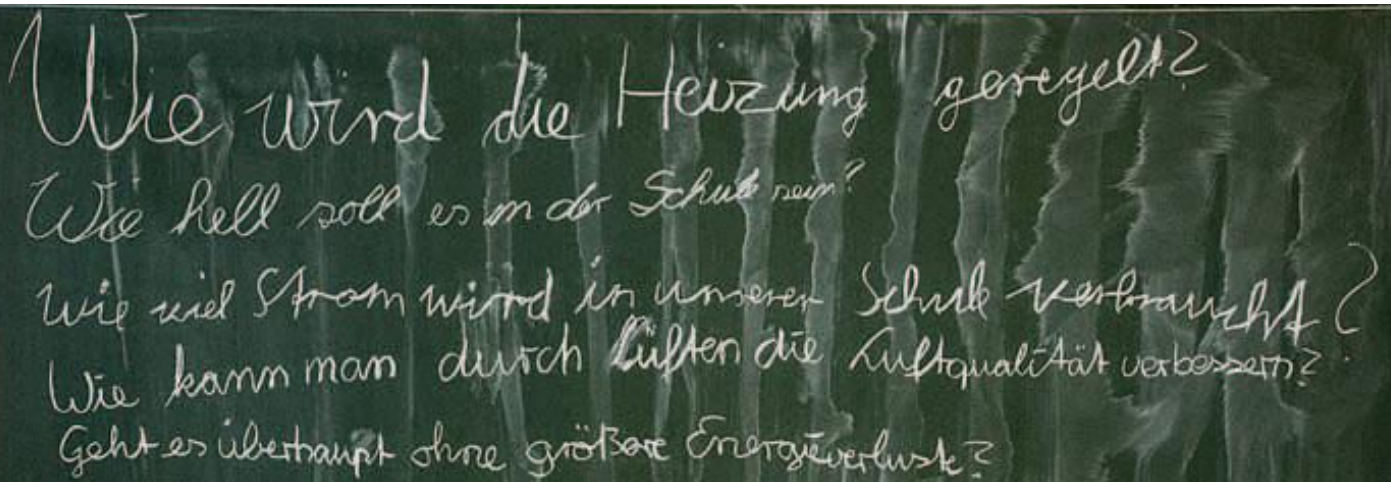 Wie wird die Heizung geregelt?
Wie hell soll es in der Schule sein?
Wie viel Strom wird in unserer Schule verbraucht?
Wie kann man durch Lüften die Luftqualität verbessern?
Geht es überhaupt ohne größere Energieverluste?